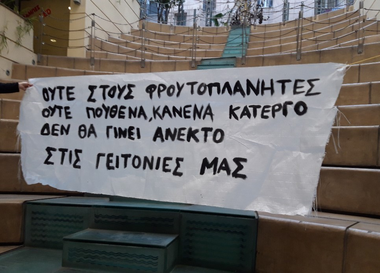 ΟΥΤΕ ΣΤΟΥΣ ΦΡΟΥΤΟΠΛΑΝΗΤΕΣ
ΟΥΤΕ ΠΟΥΘΕΝΑ, ΚΑΝΕΝΑ ΚΑΤΕΡΓΟ
ΔΕΝ ΘΑ ΓΙΝΕΙ ΑΝΕΚΤΟ
ΣΤΙΣ ΓΕΙΤΟΝΙΕΣ ΜΑΣ